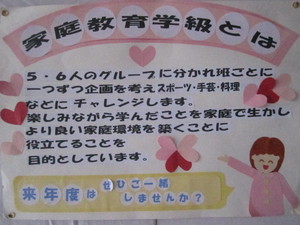 家庭教育学級とは
5・6人のグループに分かれ班ごとに
一つずつ企画を考えスポーツ・手芸・料理
などに チャレンジします。
楽しみながら学んだことを家庭で生かし
より良い家庭環境を築くことに
役立てることを
目的としています。
来年度は ぜひご一緒
しませんか？